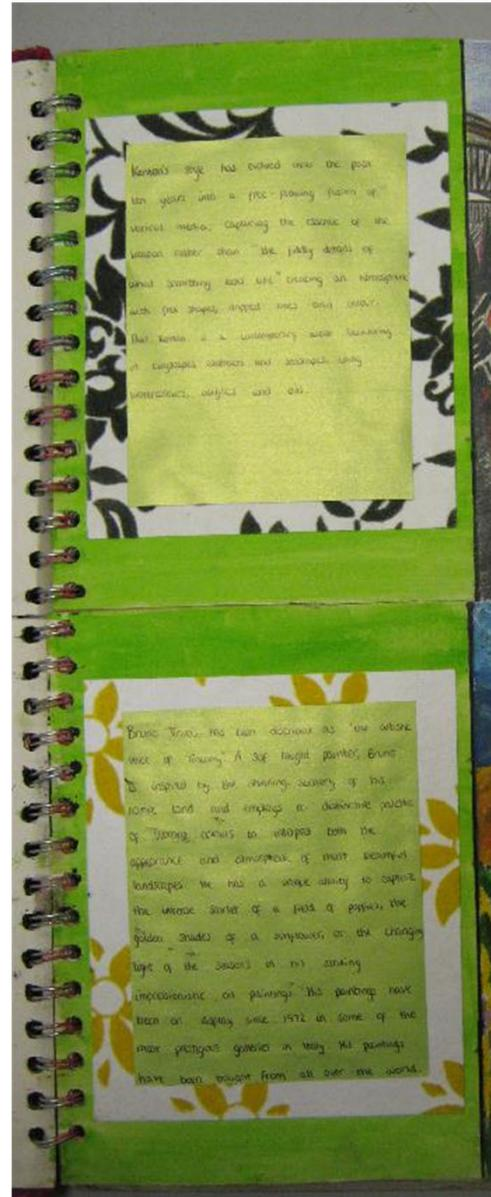 Kenton's style has evolved over the past
ten years into a free-flowing fusion of
various media, capturing the essence of the
subject rather than "the fiddly details of
something real life" creating an atmosphere
with free shapes, dripped lines and colour.
Paul Kenton is a contemporary artist
in landscapes abstracts and seascapes using
watercolours, acrylics and oils.
Bruno Tinucci has been described as 'the artistic
voice of Tuscany'. A self taught painter, Bruno
is inspired by the stunning scenery of his
home land and employs a distinctive palette
of strong colours to interpret both the
appearance and atmosphere of most beautiful
landscapes. He has a unique ability to capture
the intense scarlet of a field of poppies, the
golden shades of a sunflower, or the changing
light of the seasons in his striking
impressionistic oil paintings. His paintings have
been on display since 1972 in some of the
most prestigious galleries in Italy. His paintings
have been bought from all over the world.